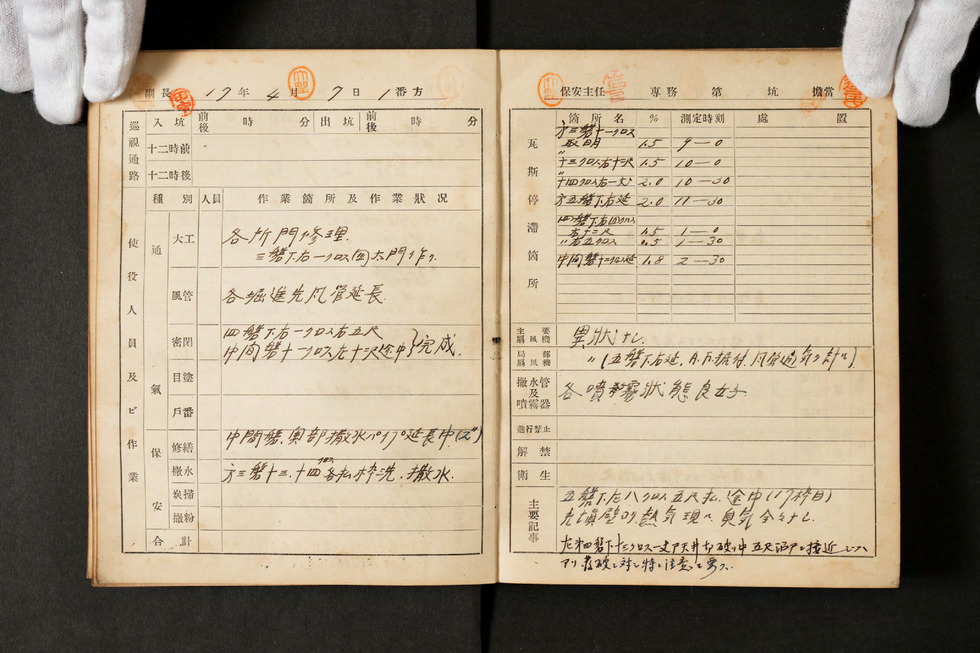 副長 17年4月7日1番方
巡視通路
入坑 前後 時 分 出坑 前後 時 分
十二時前
十二時後
使役人員及ビ作業
種別 人員 作業箇所及作業狀况
通氣
大工 各所門修理.
三盤下右一クロス(四)大門作り.
風管 各堀進先風管延長
密閉 四盤下右一クロス右五尺
中间盤十一クロス左十二尺途中}完成.
目塗
戶番
保安
修繕 中間盤.奥部撒水パイプ延長中(2")
撒水 方三盤十三.十四クロス各払枠洗.撒水.
炭掃
撒粉
合計
保安主任 専務 第 坑 擔當
瓦斯停滯箇所
箇所名 % 測定時刻 處置
方三盤十一クロス
〃 取明 1.5 9—0
十三クロス右十三尺 1.5 10—0
十四クロス右一丈 2.0 10—30
方五盤下右延 2.0 11—30
四盤下右四クロス
右十三尺 1.5 1—0
〃右五クロス 0.5 1—30
中间盤十三クロス延 1.8 2—30
主要扇風機 異狀ナし.
局部扇風機 〃(五盤下右延.
撒水管及噴霧器 各噴霧狀態良好
進行禁止
解禁
衛生
主要記事
五盤下左八クロス五尺払.途中(17枠目)
充填壁ヨリ熱気現ハ.臭気全クナし.